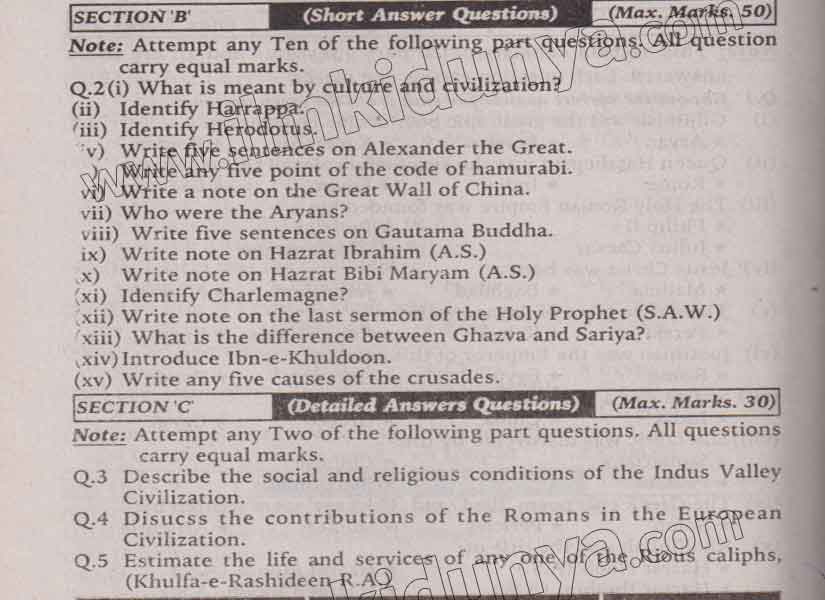 SECTION 'B' (Short Answer Questions) (Max. Marks. 50)
Note: Attempt any Ten of the following part questions. All question
carry equal marks.
Q.2(i) What is meant by culture and civilization?
(ii) Identify Harrappa.
(iii) Identify Herodotus.
v) Write five sentences on Alexander the Great.
Write any five point of the code of hamurabi.
vi) Write a note on the Great Wall of China.
vii) Who were the Aryans?
viii) Write five sentences on Gautama Buddha.
ix) Write note on Hazrat Ibrahim (A.S.)
x) Write note on Hazrat Bibi Maryam (A.S.)
(xi) Identify Charlemagne?
(xii) Write note on the last sermon of the Holy Prophet (S.A.W.)
(xiii) What is the difference between Ghazva and Sariya?
(xiv) Introduce Ibn-e-Khuldoon.
(xv) Write any five causes of the crusades.
SECTION 'C' (Detailed Answers Questions) (Max. Marks. 30)
Note: Attempt any Two of the following part questions. All questions
carry equal marks.
Q.3 Describe the social and religious conditions of the Indus Valley
Civilization.
Q.4 Disucss the contributions of the Romans in the European
Civilization.
Q.5 Estimate the life and services of any one of the Rious caliphs,
(Khulfa-e-Rashideen R.A)
www.ilmkidunya.com